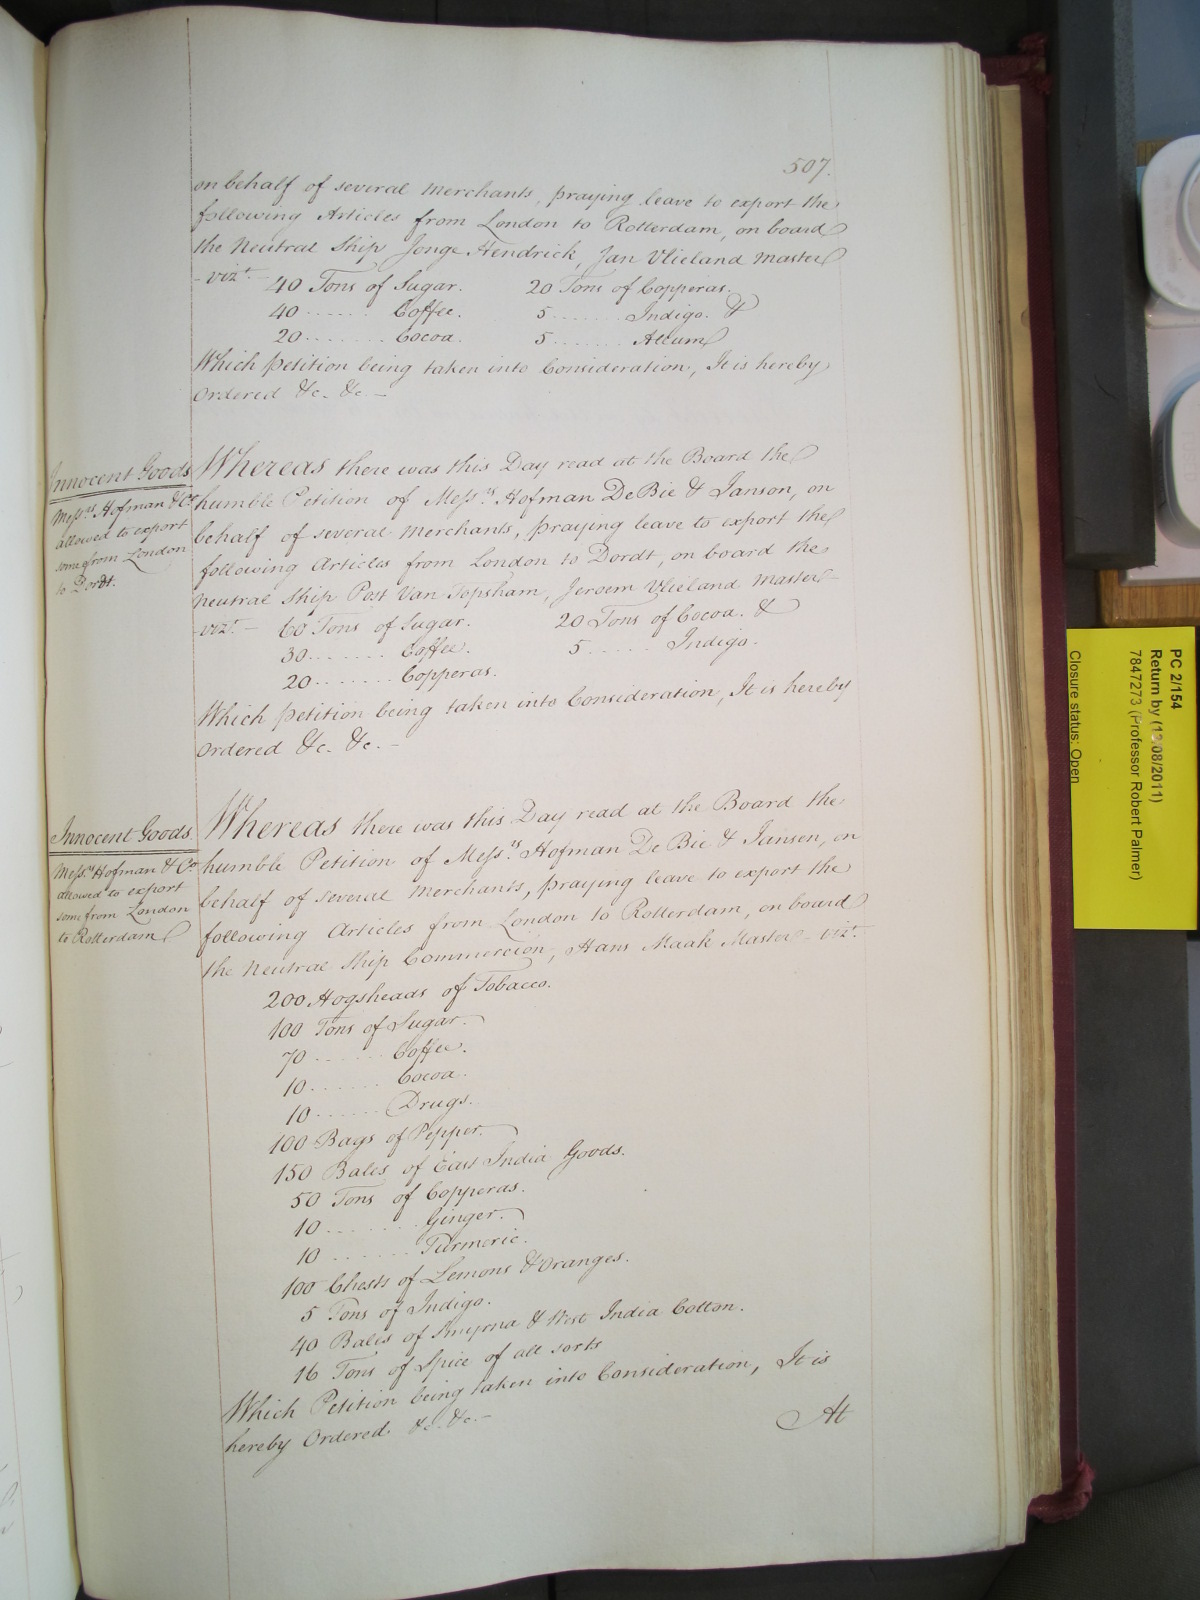 507.
on behalf of several Merchants, praying leave to export the
following Articles from London to Rotterdam, on board
the Neutral Ship Jonge Hendrick, Jan Vlieland Master
- vizt. - 40 Tons of Sugar. 20 Tons of Copperas.
40 ...... Coffee. 5 ....... Indigo. &
20 ........ Cocoa. 5 ....... Allum
Which petition being taken into Consideration, It is hereby
Ordered &c. &c. -
Innocent Goods
Messrs. Hofman & Co.
allowed to export
some from London
to Dordt.
Whereas there was this Day read at the Board the
humble Petition of Messrs. Hofman De Bie & Janson, on
behalf of several Merchants, praying leave to export the
following Articles from London to Dordt, on board the
Neutral Ship Post Van Topsham, Jeroem Vlieland Master -
- vizt. - 60 Tons of Sugar. 20 Tons of Cocoa. &
30 ....... Coffee. 5 ...... Indigo.
20 ....... Copperas.
Which petition being taken into Consideration, It is hereby
Ordered &c. &c. -
Innocent Goods.
Messrs. Hofman & Co.
allowed to export
some from London
to Rotterdam
Whereas there was this Day read at the Board the
humble Petition of Messrs. Hofman De Bie & Jansen, on
behalf of several Merchants, praying leave to export the
following Articles from London to Rotterdam, on board
the Neutral Ship Commercion, Hans Maak Master - vizt.
200 Hogsheads of Tobacco.
100 Tons of Sugar.
70 ...... Coffee.
10 ...... Cocoa.
10 ...... Drugs.
100 Bags of Pepper.
150 Bales of East India Goods.
50 Tons of Copperas.
10 ........ Ginger.
10 ...... Turmeric.
100 Chests of Lemons & Oranges.
5 Tons of Indigo.
40 Bales of Smyrna & West India Cotton.
16 Tons of Spice of all sorts
Which Petition being taken into Consideration, It is
hereby Ordered. &c. &c. -
At
PC 2/154
Return by (12/08/2011)
7847273 (Professor Robert Palmer)
Closure status: Open